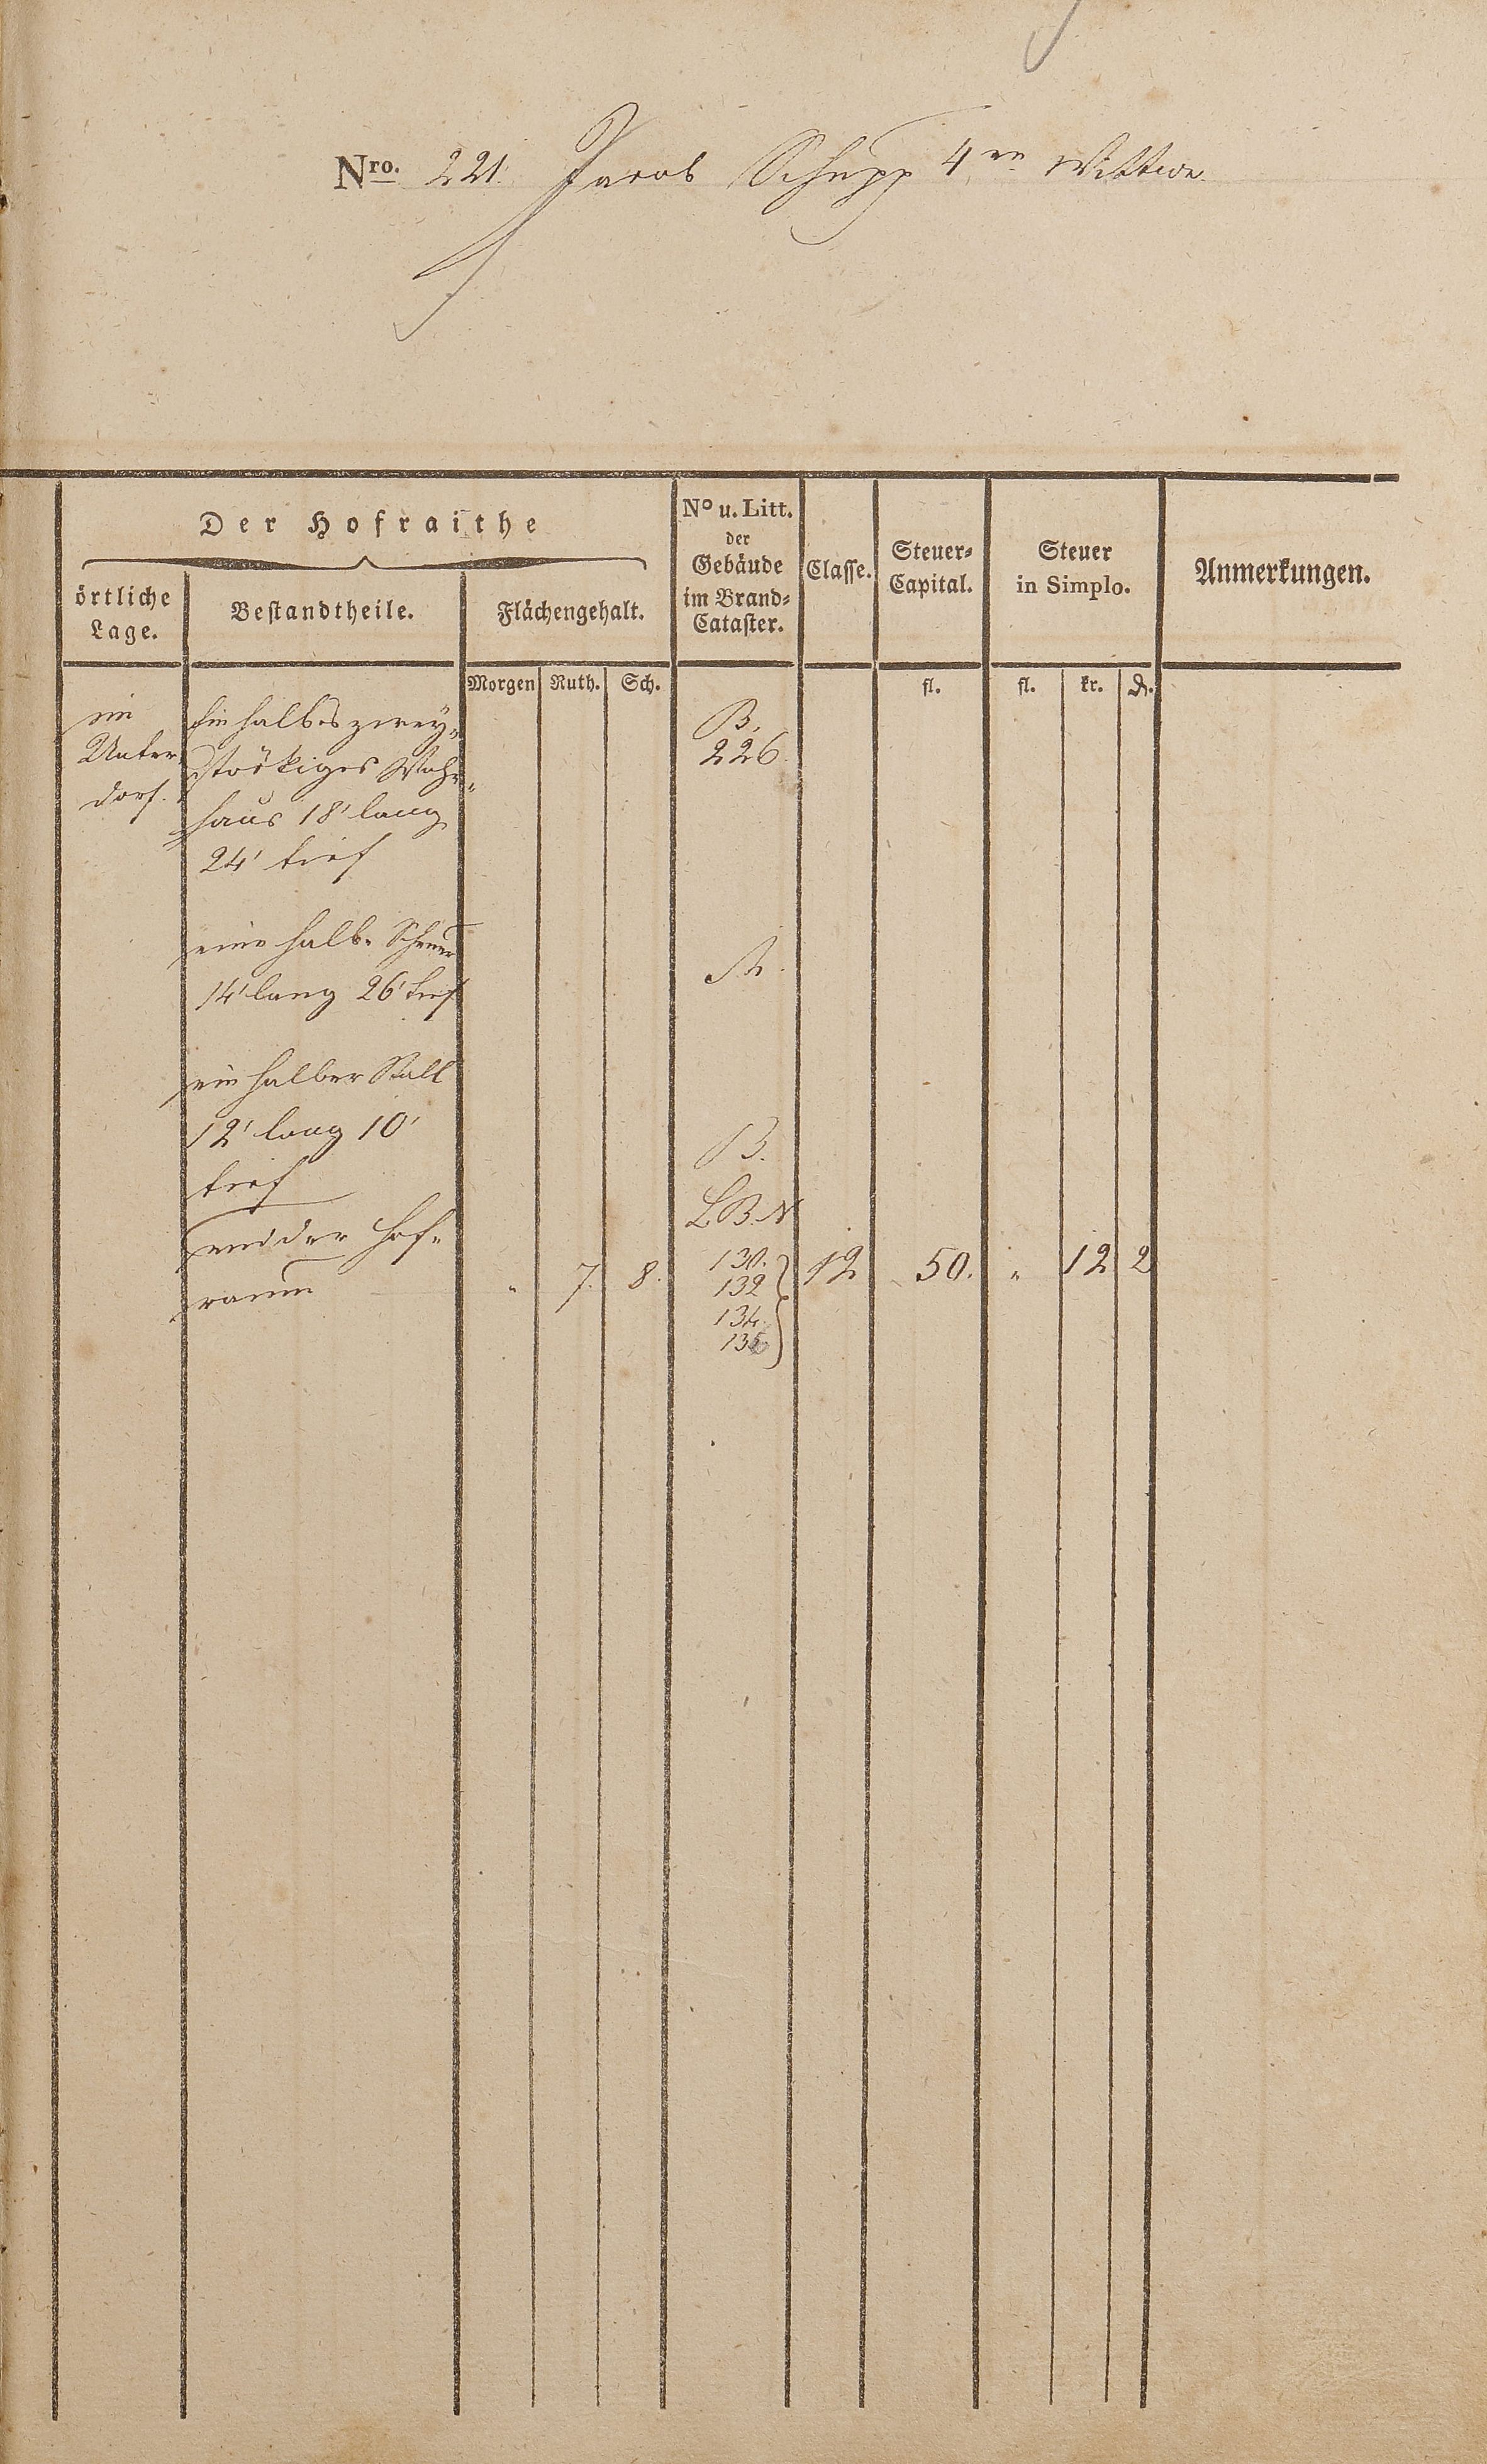 Nro. 221. Jacob Schupp 4ten Wittwe.
Der Hofraithe
örtliche Lage.
Bestandtheile.
Flächengehalt.
No u. Litt. der Gebäude im Brand-Cataster.
Classe.
Steuer-Capital.
Steuer in Simplo.
Anmerkungen.
Morgen Ruth. Sch. fl. fl. kr. d.
im Ein halbes zwey- B.
Unter stöckiges Wohn- 226.
dorf. haus 18' lang
24' tief
eine halbe Scheuer
14' lang 26' tief
ein halber Stall
12' lang 10' B.
tief
L.B.N
und der Hof-
raum " 7. 8. 130. 12 50. " 12 2
132
134.
135